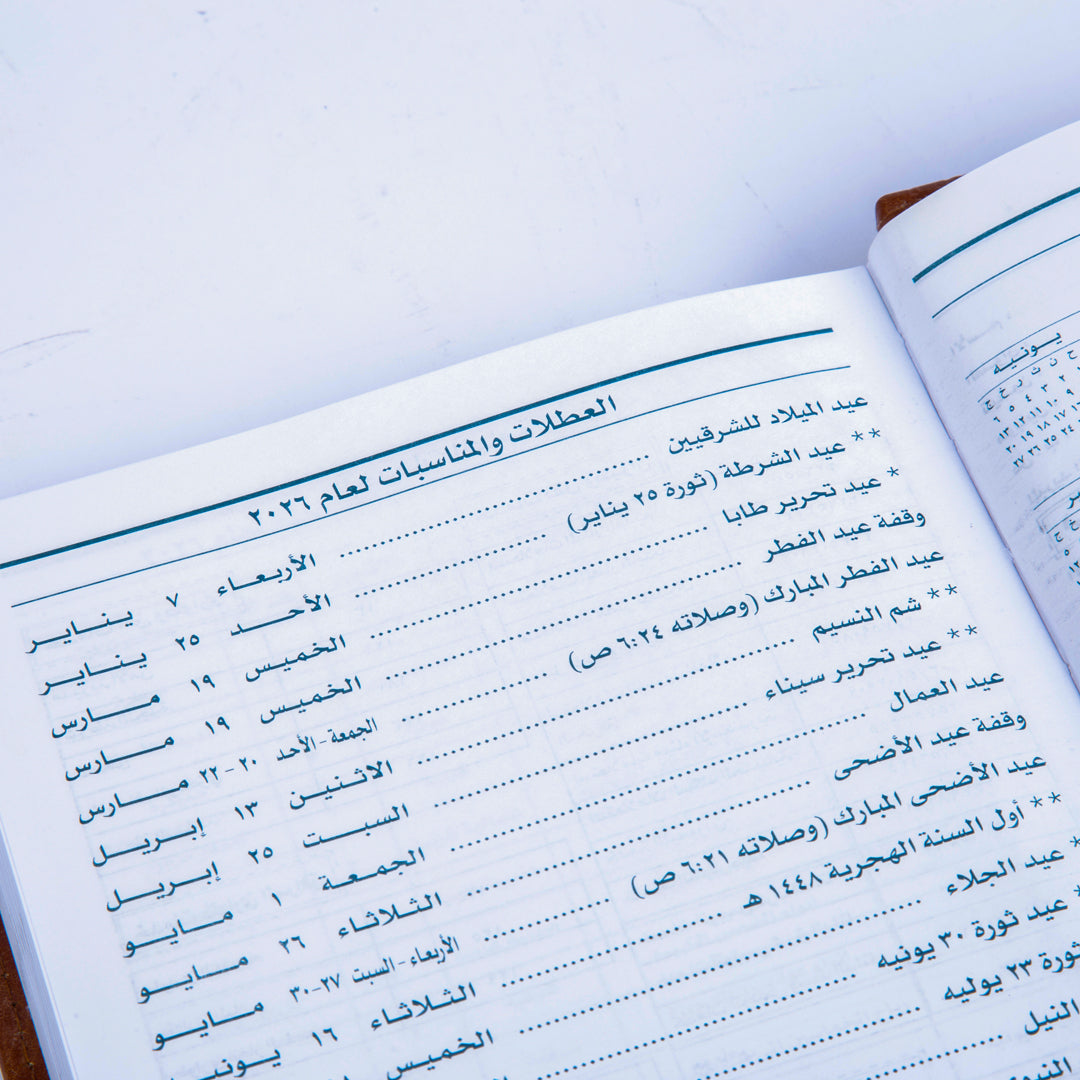 العطلات والمناسبات لعام ٢٠٢٦
عيد الميلاد للشرقيين ........ الأربعاء ٧ يناير
** عيد الشرطة (ثورة ٢٥ يناير) ........ الأحد ٢٥ يناير
* عيد تحرير طابا ........ الخميس ١٩ مارس
وقفة عيد الفطر ........ الخميس ١٩ مارس
عيد الفطر المبارك (وصلاته ٦:٢٤ ص) ........ الجمعة - الأحد ٢٠ - ٢٢ مارس
** شم النسيم ........ الاثنين ١٣ إبريل
** عيد تحرير سيناء ........ السبت ٢٥ إبريل
عيد العمال ........ الجمعة ١ مايو
وقفة عيد الأضحى ........ الثلاثاء ٢٦ مايو
عيد الأضحى المبارك (وصلاته ٦:٢١ ص) ........ الأربعاء - السبت ٢٧-٣٠ مايو
** أول السنة الهجرية ١٤٤٨ هـ ........ الثلاثاء ١٦ يونيـ
* عيد الجلاء ........ الخميس
* عيد ثورة ٣٠ يونيه ........
ثورة ٢٣ يوليه ........
النيل ........
يونيه
ح ن ث ر خ ج
٢ ٣ ٤ ٥ ٦
٩ ١٠ ١١ ١٢ ١٣
١٧ ١٨ ١٩ ٢٠
٢٤ ٢٥ ٢٦ ٢٧